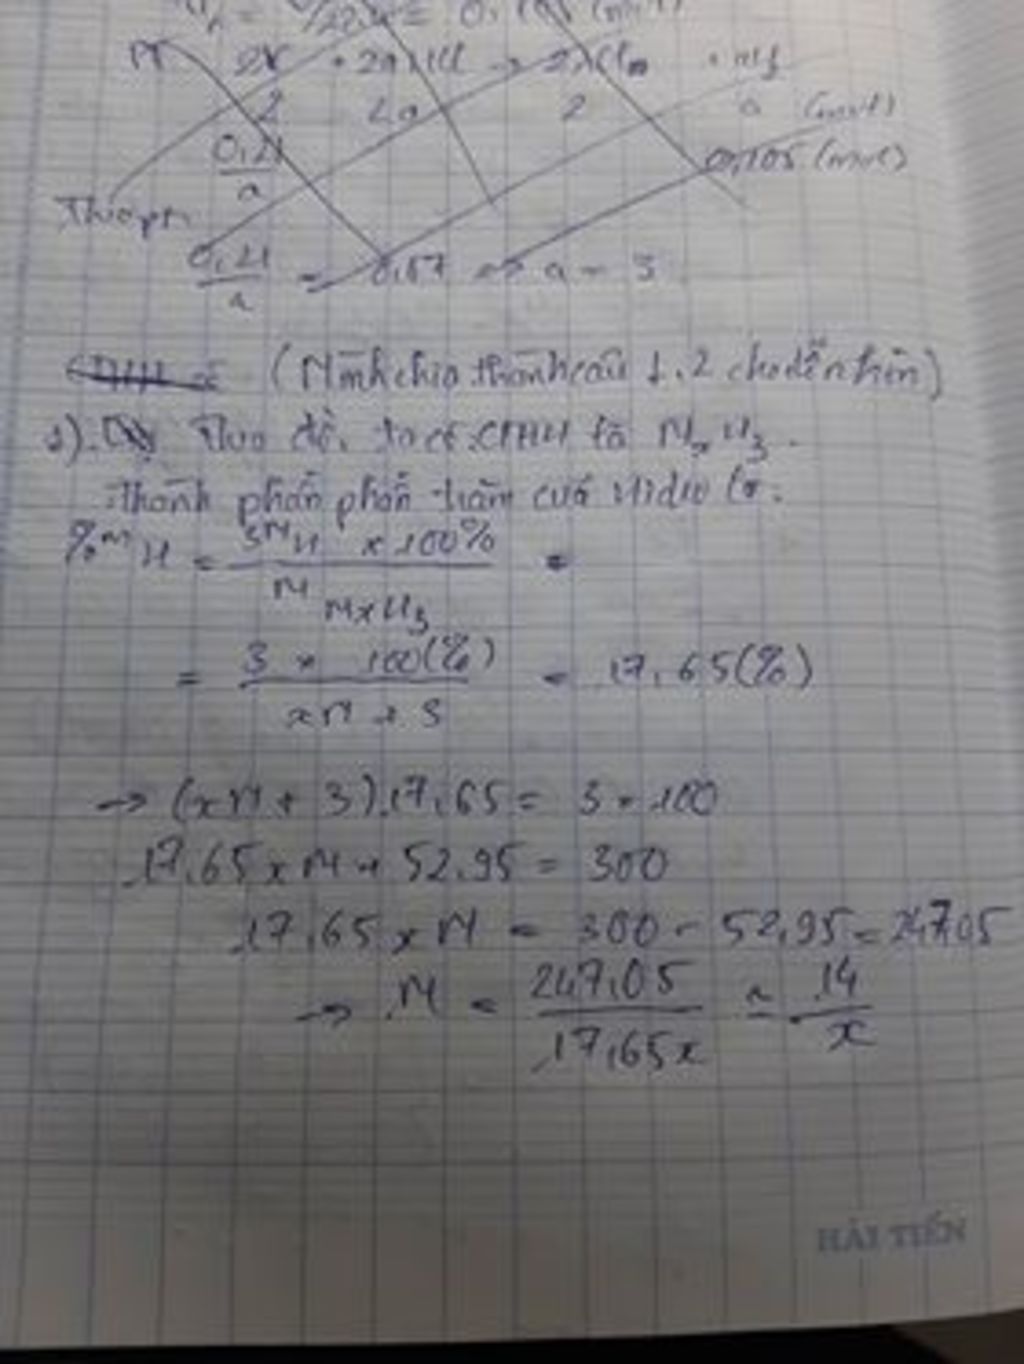 2X + 2aHCl → 2XCla + aH2
2 2a 2 a (mol)
0,21/a 0,105 (mol)
0,21/a = 0,07 → a = 3
(Mình chia thành câu 1,2 cho dễ nhìn)
Theo đề, ta có CTHH là MxH3.
thành phần phần trăm của Hidro là:
%mH = 3MH x 100% / M MxH3 =
= 3 x 100(%) / xM + 3 = 17,65(%)
→ (xM + 3).17,65 = 3 x 100
17,65xM + 52,95 = 300
17,65xM = 300 - 52,95 = 247,05
→ M = 247,05 / 17,65x ≈ 14 / x
HẢI TIẾN